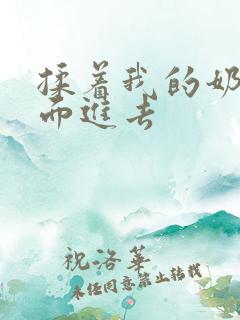 揉着我的奶
而进去
祝洛华
未经同意禁止转载